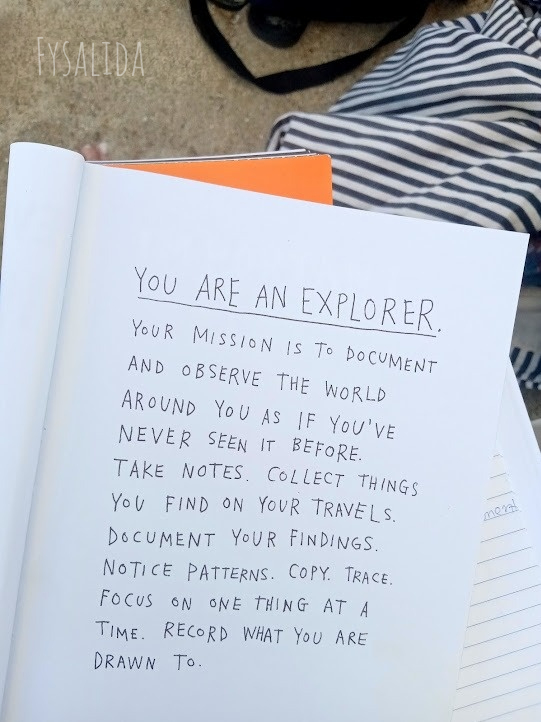 FYSALIDA
YOU ARE AN EXPLORER.
YOUR MISSION IS TO DOCUMENT
AND OBSERVE THE WORLD
AROUND YOU AS IF YOU'VE
NEVER SEEN IT BEFORE.
TAKE NOTES. COLLECT THINGS
YOU FIND ON YOUR TRAVELS.
DOCUMENT YOUR FINDINGS.
NOTICE PATTERNS. COPY. TRACE.
FOCUS ON ONE THING AT A
TIME. RECORD WHAT YOU ARE
DRAWN TO.